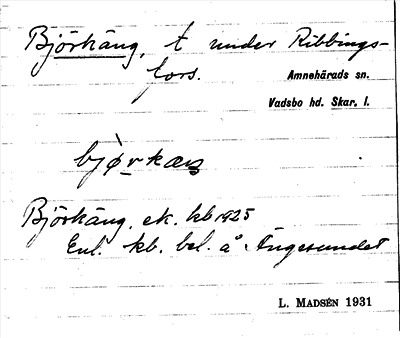 Björkäng, t under Ribbings-
fors.
Amnehärads sn.
Vadsbo hd. Skar. l.
bjørkæŋ
Björkäng. ek. kb 1925
Enl. kb. bel. å Ängesundet
L. MADSÉN 1931